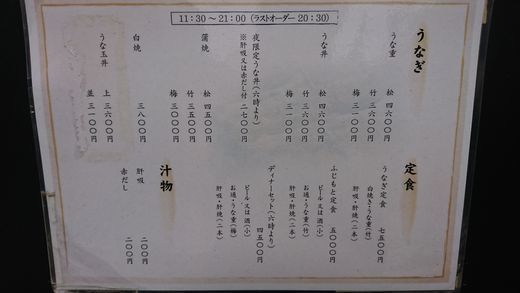 11:30～21:00（ラストオーダー 20:30）
うなぎ
うな重
松 四六〇〇円
竹 三六〇〇円
梅 三一〇〇円
うな丼
松 四六〇〇円
竹 三六〇〇円
梅 三一〇〇円
夜限定うな丼（六時より）
※肝吸又は赤だし付 二七〇〇円
蒲焼
松 四五〇〇円
竹 三五〇〇円
梅 三〇〇〇円
白焼
三八〇〇円
うな玉丼
上 三六〇〇円
並 三一〇〇円
定食
うなぎ定食 七五〇〇円
白焼き・うな重（竹）
肝吸・肝焼（二本）
ふじもと定食 五〇〇〇円
ビール又は酒（小）
お通・うな重（竹）
肝吸・肝焼（二本）
ディナーセット（六時より）
四五〇〇円
ビール又は酒（小）
お通・うな重（梅）
肝吸・肝焼（二本）
汁物
肝吸 二〇〇円
赤だし 二〇〇円